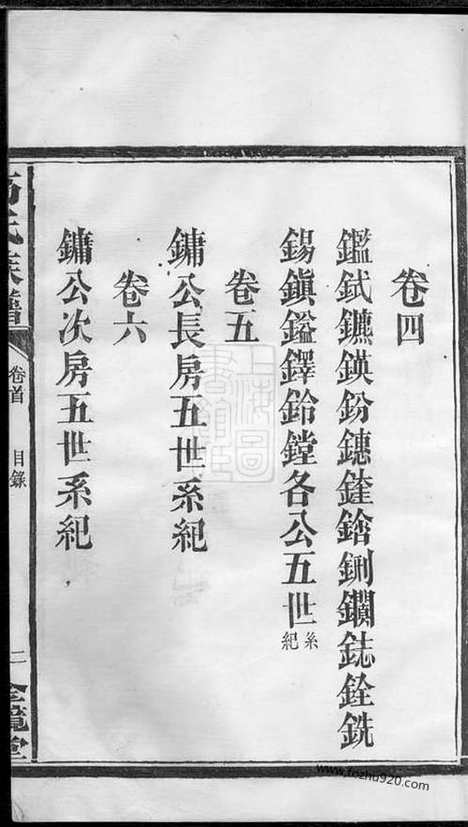 卷四
鑑鉽鍈鈖鏸鑭鋕銓銑
錫鎭鎰鐸鈴鏜各公五世系紀
卷五
鏞公長房五世系紀
卷六
鏞公次房五世系紀
氏族譜
卷首 目錄
二
堂
上海圖書館藏
www.fozhu920.com